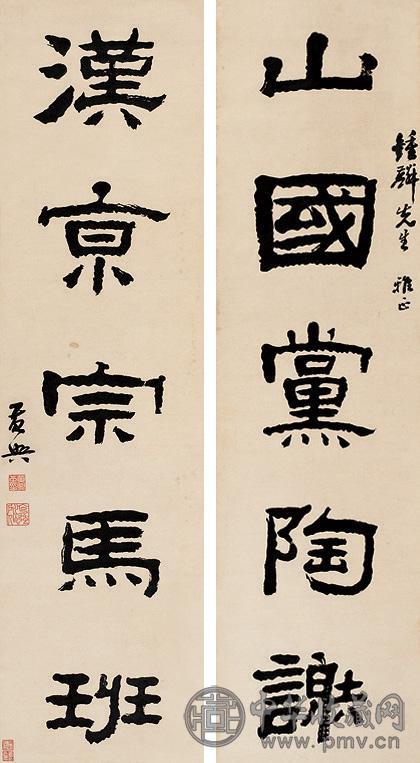 鍾麟先生雅正
山國黨陶謝
漢京宗馬班
黃興
中华收藏网
www.pmv.cn